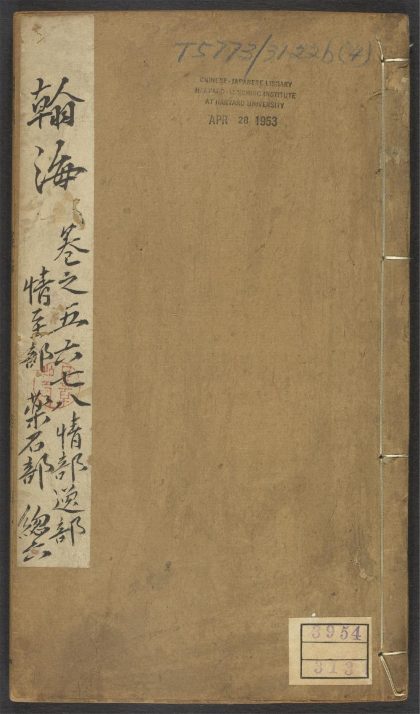 T5773/3122b(4)
CHINESE-JAPANESE LIBRARY
HARVARD-YENCHING INSTITUTE
AT HARVARD UNIVERSITY
APR 28 1953
翰海
卷之五六七八 情部 逸部
情至部 藥石部 總六
3954
313